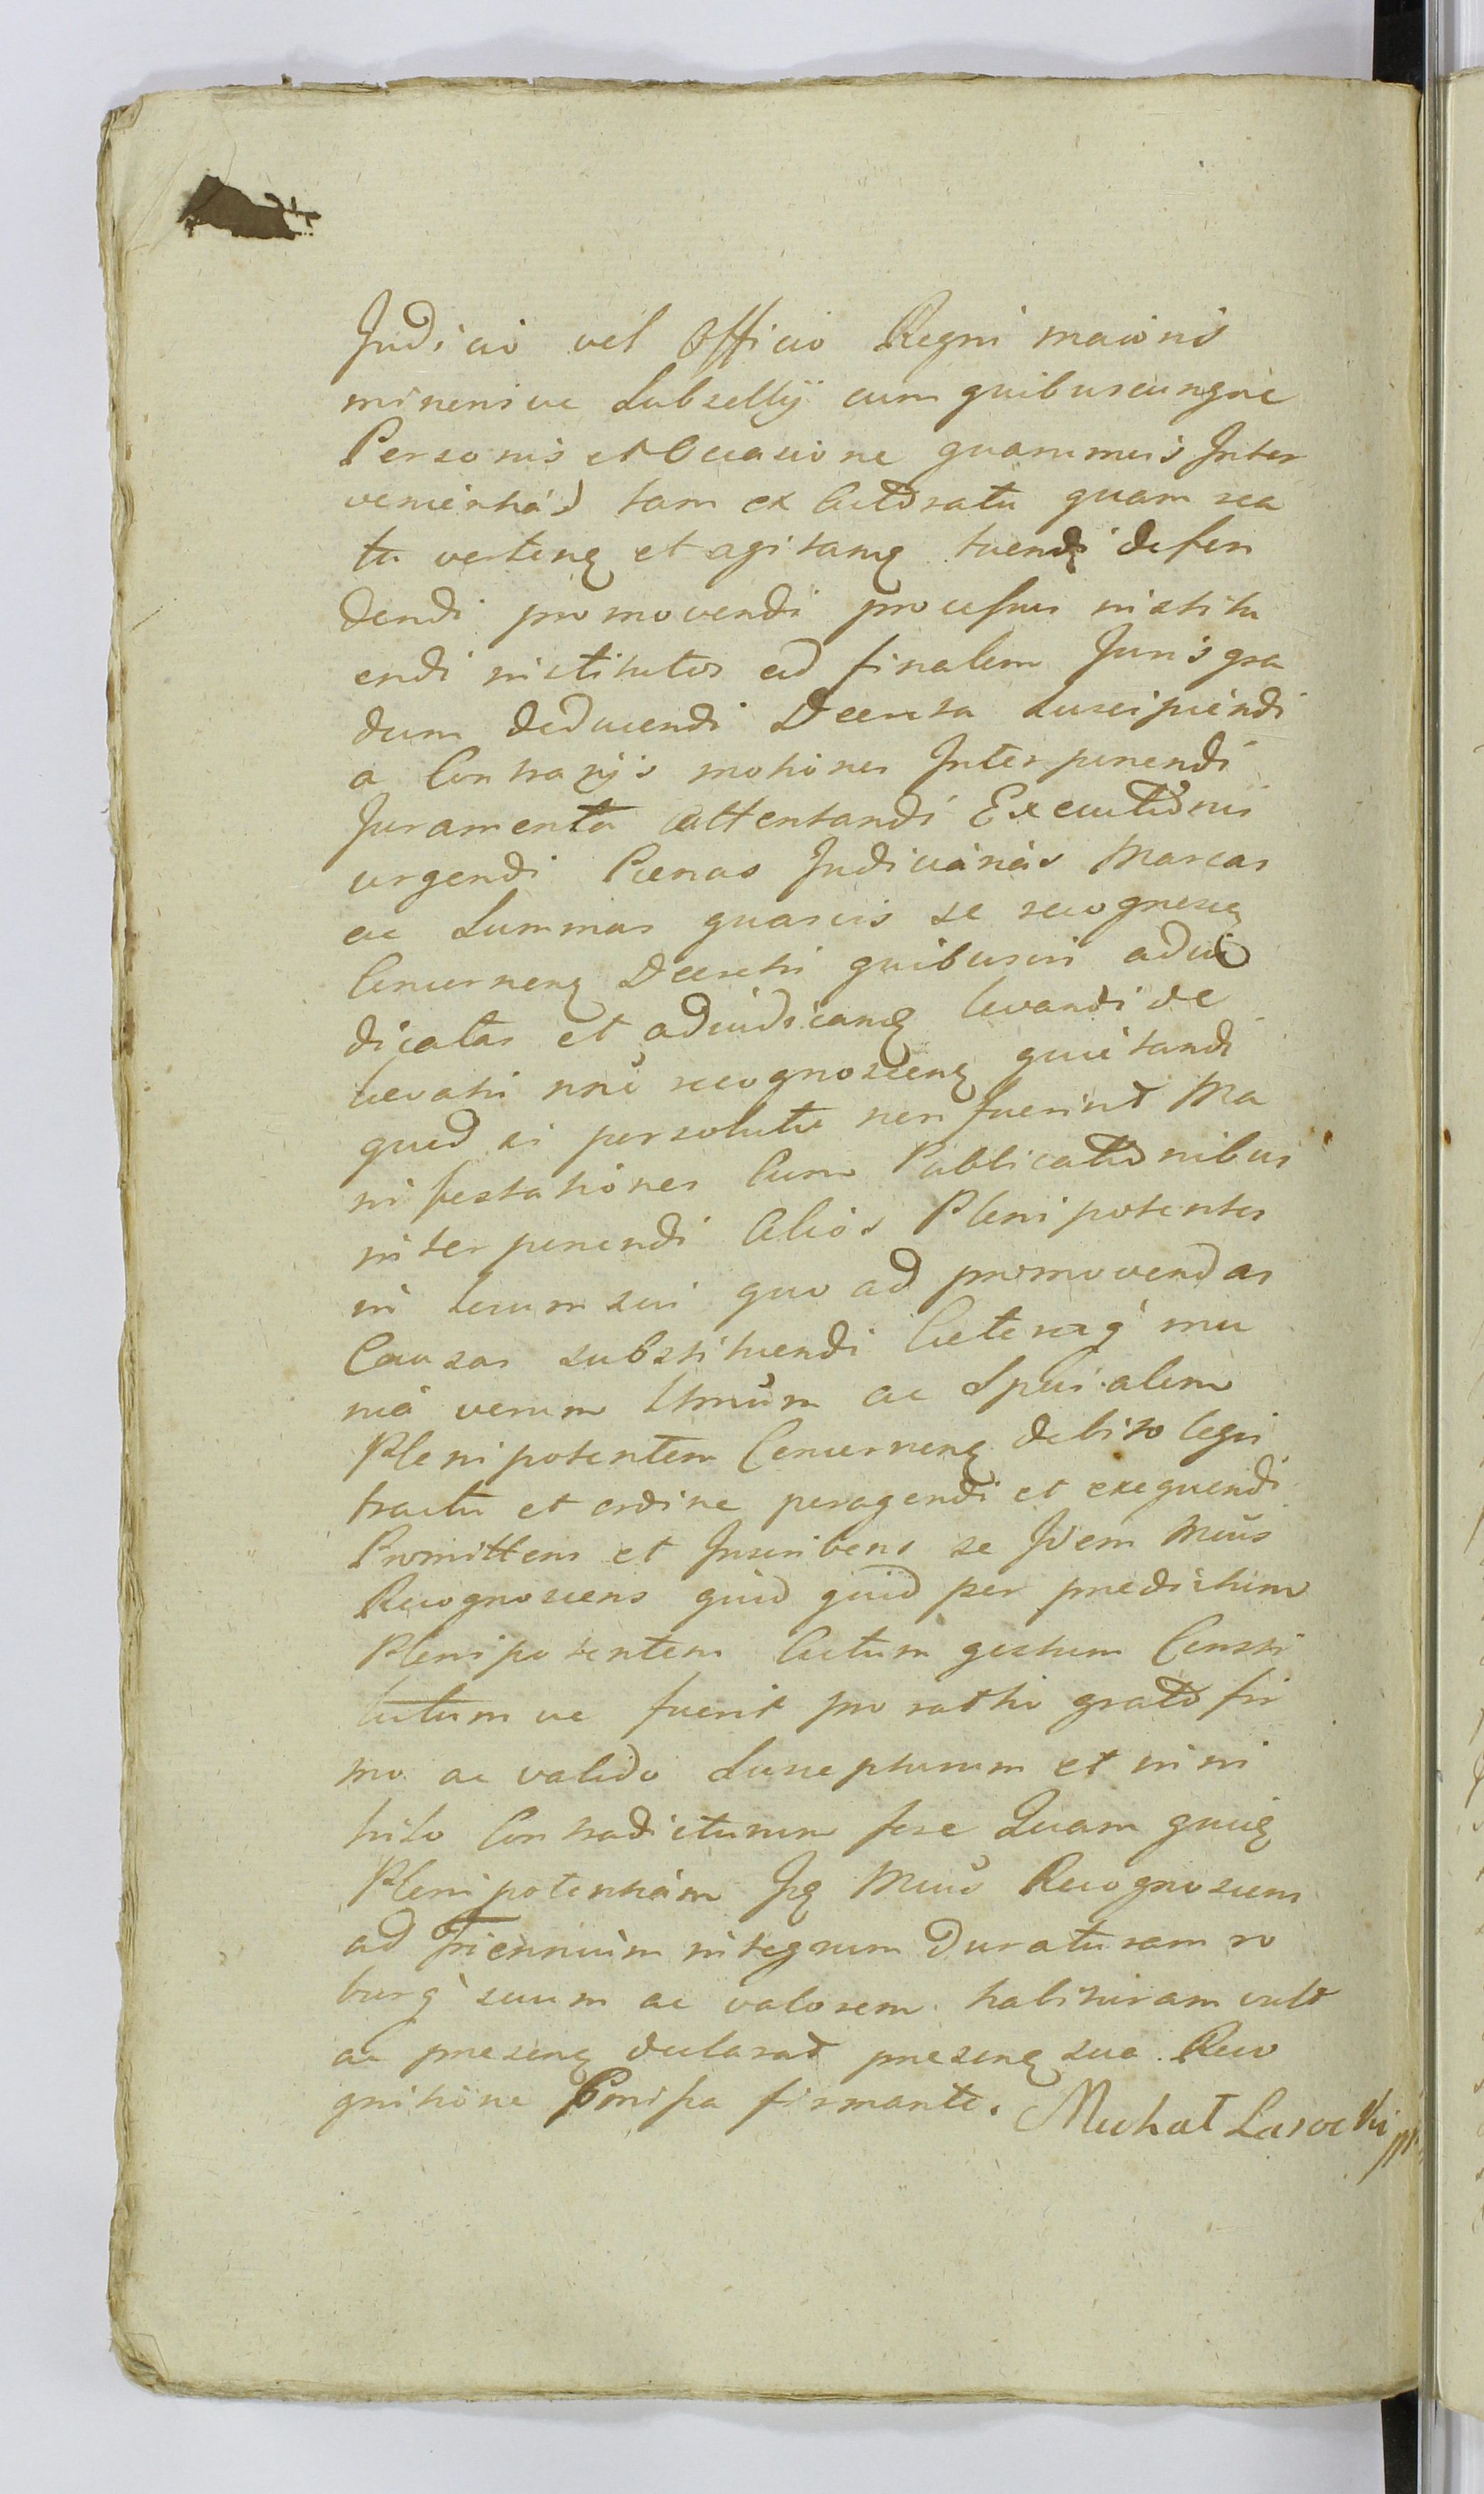 Judicio vel Officio Regni maioris
minorisve Subsellij cum quibuscunque
Personis et Occasione quarumvis Inter
venientiarũ tam ex Actoratu quam rea
tu verten̄ et agitan̄ tuendi defen
dendi promovendi processus institu
endi institutos ad finalem Juris gra
dum deducendi Decreta suscipiendi
a Contrarijs motiones Interponendi
Juramenta attentandi Executionis
urgendi Poenas Judiciarias Marcas
ac Summas quasvis se recognoscen̄
Concernen̄ Decretis quibusvis adiu
dicatas et adiudican̄ levandi de
levatis nñe recognoscen̄ quietandi
quod si persolutae non fuerint Ma
nifestationes cum Publicationibus
interponendi Alios Plenipotentes
in locum sui quo ad promovendas
Causas substituendi Ceteraq́ mu
nia verum Umũm ac Spcialem
Plenipotentem Concernen̄ debito legis
tractu et ordine peragendi et exequendi
Promittens et Inscribens se Idem Mcũs
Recognoscens quid quid per praedictum
Plenipotentem Actum gestum Consti
tutum ve fuerit pro ratto grato fir
mo ac valido Suscepturum et in ni
hilo Contradicturum fore Quam quid̄
Plenipotentiam Id̄ Mcũs Recognoscens
ad Triennium integrum duraturam ro
burq́ suum ac valorem habituram vult
ac praesen̄ declarat praesen̄ sua Reco
gnitione Praemissa firmante. Michał Lasocki mp